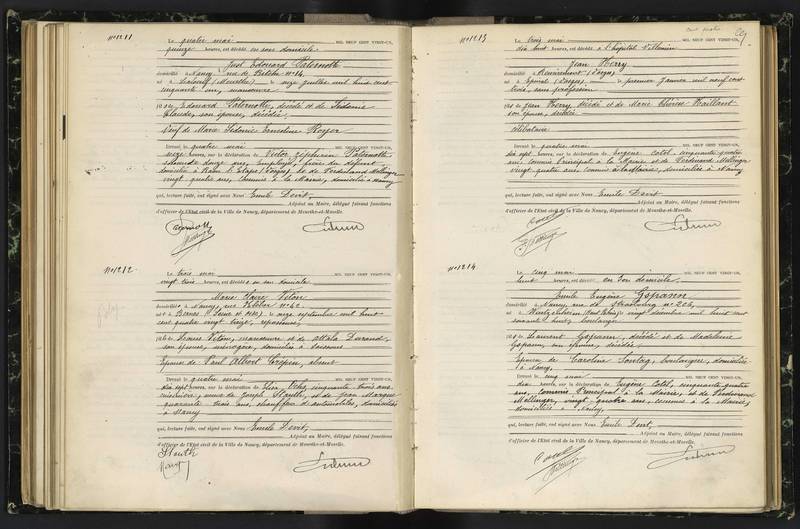 N° 1211
Le quatre mai MIL NEUF CENT VINGT-UN,
quinze heures, est décédé en son domicile
Just Edouard Paternotte
domicilié à Nancy, rue de Bitche N° 14,
né à (Meurthe) le onze juillet mil huit cent
cinquante un, manoeuvre
fils de Edouard Paternotte, décédé et de Sidonie
Claude, son épouse, décédée,
Veuf de Marie Sidonie Ernestine Royer
Devant le quatre mai MIL NEUF CENT VINGT-UN,
seize heures, sur la déclaration de Victor Zéphirin Paternotte
soixante douze ans, employé, frère du défunt
domicilié à Raon l'Etape (Vosges) et de Ferdinand Mellinger
vingt quatre ans, commis à la Mairie, domicilié à Nancy
qui, lecture faite, ont signé avec Nous Emile Devit,
Adjoint au Maire, délégué faisant fonctions
d'officier de l'Etat civil de la Ville de Nancy, département de Meurthe-et-Moselle.
N° 1212
Le trois mai MIL NEUF CENT VINGT-UN,
vingt trois heures, est décédée en son domicile
Marie Claire Véton
domiciliée à Nancy, rue N° 42
née à (Seine et Oise) le onze septembre mil huit
cent quatre vingt treize, repasseuse,
fille de Véton, manoeuvre et de Attala Durand,
son épouse, ménagère, domiciliés à Soissons
Epouse de Paul Albert Crépin, absent
Devant le quatre mai MIL NEUF CENT VINGT-UN,
dix sept heures, sur la déclaration de cinquante trois ans,
veuve de Joseph Stauth, et de Jean Marque
quarante trois ans, chauffeur d'automobiles, domiciliés
à Nancy
qui, lecture faite, ont signé avec Nous Emile Devit,
Adjoint au Maire, délégué faisant fonctions
d'officier de l'Etat civil de la Ville de Nancy, département de Meurthe-et-Moselle.
Stauth
N° 1213
Le trois mai MIL NEUF CENT VINGT-UN,
dix huit heures, est décédé à l'hôpital Villemin
Jean Herry
domicilié à (Vosges)
né à Epinal (Vosges) le premier janvier mil neuf cent
trois, sans profession
fils de Jean Herry décédé et de Marie Thérèse Vaillant
son épouse, décédée
célibataire
Devant le quatre mai MIL NEUF CENT VINGT-UN,
dix sept heures, sur la déclaration de Eugène Cotel, cinquante quatre
ans, commis Principal à la Mairie et de Ferdinand Mellinger
vingt quatre ans, commis à la Mairie, domiciliés à Nancy
qui, lecture faite, ont signé avec Nous Emile Devit
Adjoint au Maire, délégué faisant fonctions
d'officier de l'Etat civil de la Ville de Nancy, département de Meurthe-et-Moselle.
N° 1214
Le cinq mai MIL NEUF CENT VINGT-UN,
huit heures, est décédé en son domicile,
Emile Eugène Gspann
domicilié à Nancy, rue de Strasbourg N° 206,
né à (Haut Rhin) vingt décembre mil huit cent
soixante huit, boulanger
fils de Laurent Gspann, décédé et de Madeleine
Gspann, son épouse, décédée,
Epoux de Caroline Sontag, boulangère, domiciliée
à Nancy,
Devant le cinq mai MIL NEUF CENT VINGT-UN,
dix heures, sur la déclaration de Eugène Cotel, cinquante quatre
ans, commis Principal à la Mairie, et de Ferdinand
Mellinger, vingt quatre ans, commis à la Mairie,
domiciliés à Nancy,
qui, lecture faite, ont signé avec Nous Emile Devit,
Adjoint au Maire, délégué faisant fonctions
d'officier de l'Etat civil de la Ville de Nancy, département de Meurthe-et-Moselle.